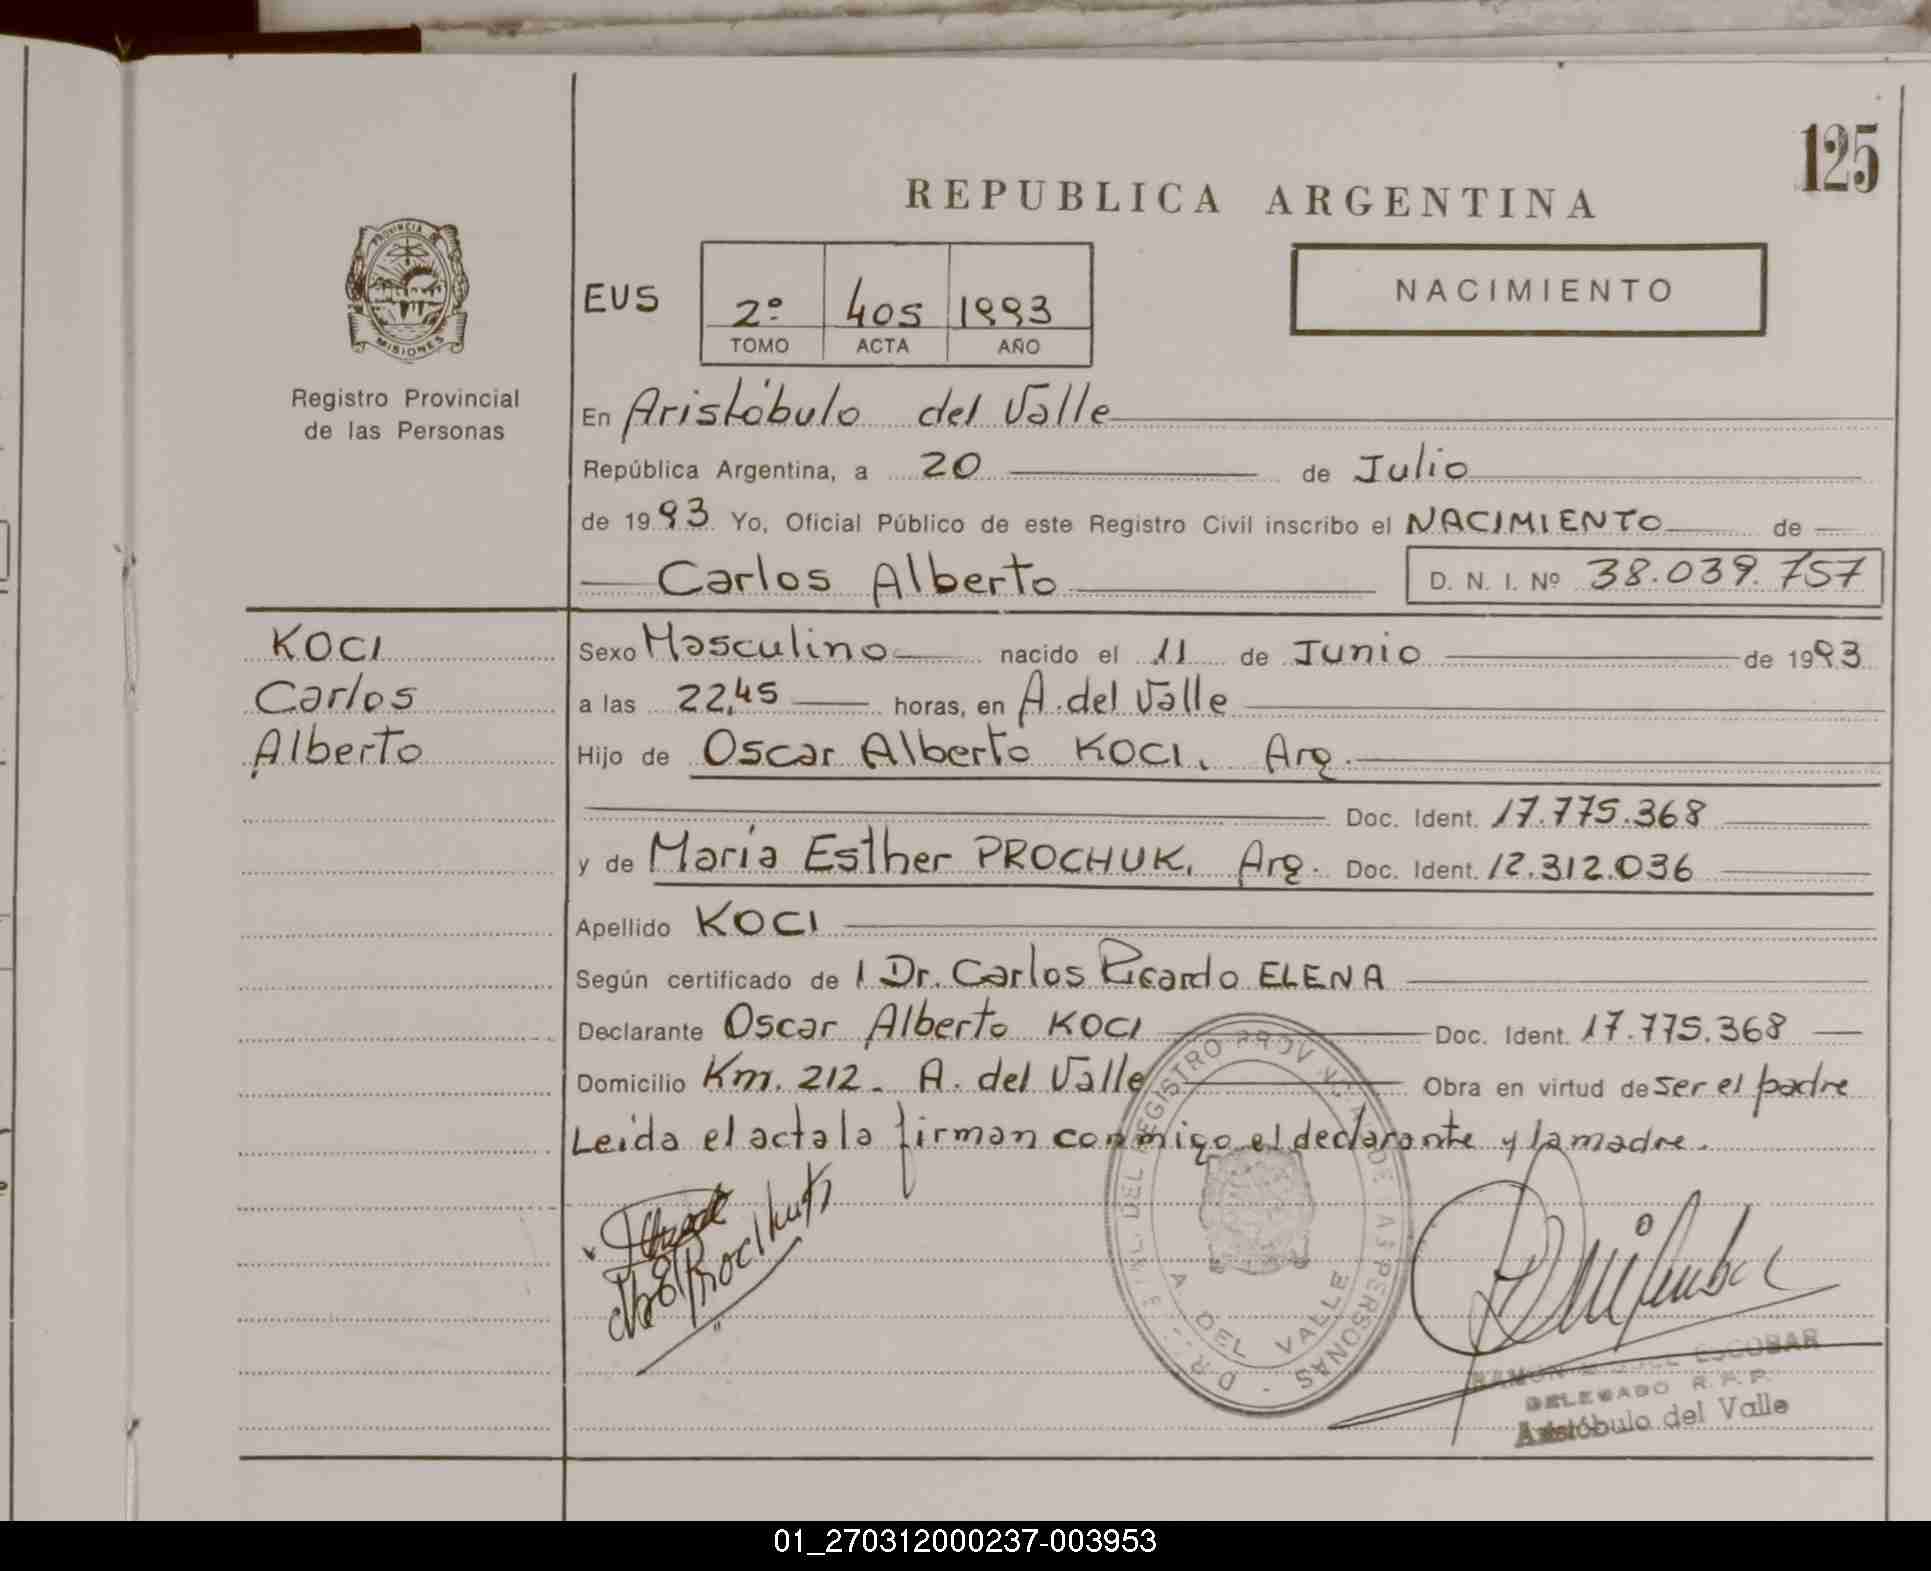 125
REPUBLICA ARGENTINA
PROVINCIA DE
MISIONES
Registro Provincial
de las Personas
EUS
2º 405 1993
TOMO ACTA AÑO
NACIMIENTO
En Aristóbulo del Valle
República Argentina, a 20 de Julio
de 1993 Yo, Oficial Público de este Registro Civil inscribo el NACIMIENTO de
Carlos Alberto D. N. I. Nº 38.039.757
KOCI
Carlos
Alberto
Sexo Masculino nacido el 11 de Junio de 1993
a las 22,45 horas, en A. del Valle
Hijo de Oscar Alberto KOCI. Arg.
Doc. Ident. 17.775.368
y de María Esther PROCHUK. Arg. Doc. Ident. 12.312.036
Apellido KOCI
Según certificado de 1 Dr. Carlos Ricardo ELENA
Declarante Oscar Alberto KOCI Doc. Ident. 17.775.368
Domicilio Km. 212 - A. del Valle Obra en virtud de ser el padre
Leida el acta la firman conmigo el declarante y la madre.
DEL REGISTRO PROVINCIAL DE LAS PERSONAS
A. DEL VALLE
ESCOBAR
DELEGADO R. P. P.
Aristóbulo del Valle
01_270312000237-003953